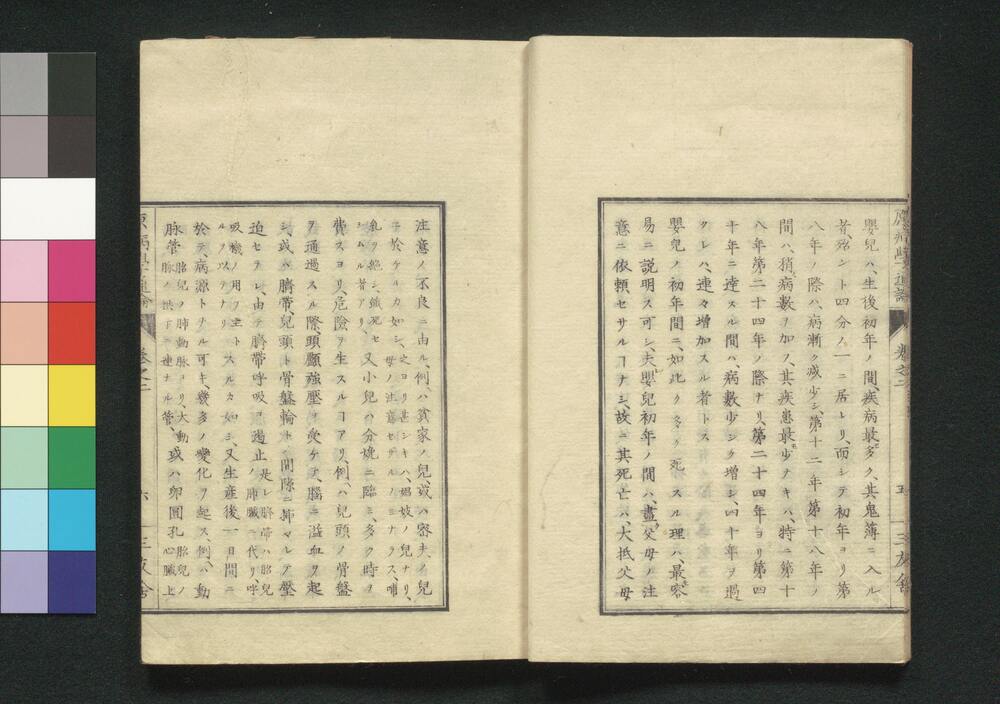 原病學通論
巻之二
五
三友舎
嬰兒ハ、生後初年ノ間、疾病最多ク、其鬼薄ニ入ル
者、殆ント四分ノ一ニ居レリ、而シテ初年ヨリ第
八年ノ際ハ、病漸ク減少シ、第十二年第十八年ノ
間ハ、稍病數ヲ加フ、其疾患最少ナキハ、特ニ第十
八年第二十四年ノ際ナリ、第二十四年ヨリ第四
十年ニ達スル間ハ、病數少シク増シ、四十年ヲ過
クレハ、連々増加スル者トス
嬰兒ノ初年間ニ、如此ク多ク死スル理ハ、最容
易ニ説明ス可シ、夫嬰兒初年ノ間ハ、盡ク父母ノ注
意ニ依頼セサルコナシ、故ニ其死亡ハ、大抵父母
注意ノ不良ニ由ル、例ハ貧家ノ兒、或ハ密夫ノ兒
ニ於ケルカ如シ、之ヨリ甚シキハ、娼妓ノ兒ナリ、
母ノ注意セサルノミナラス、哺
乳ヲ絶シ、餓死セ
シムル者アリ、
又小兒ハ分娩ニ臨ミ、多ク時ヲ
費スヨリ、危險ヲ生スルコアリ、例ハ兒頭ノ骨盤
ヲ通過スル際、頭顱強壓ヲ受ケテ、腦ニ溢血ヲ起
シ、或ハ臍帶、兒頭ト骨盤輪トノ間隙ニ挿マレテ壓
迫セラレ、由テ臍帶呼吸ヲ遏止ノ
是レ臍帶ハ胎兒
肺臟ニ代リ、呼
吸機ノ用ヲ主トスルカ如シ、又生産後一日間ニ
於テ、病源トナル可キ、幾多ノ變化ヲ起ス、例ハ動
脉管
胎兒ノ肺動脉ヨリ、大動
脉ノ拱下ニ連ナル管、
或ハ卵圓孔
胎兒ノ
心臟上
原病學通論
巻之二
六
三友舎